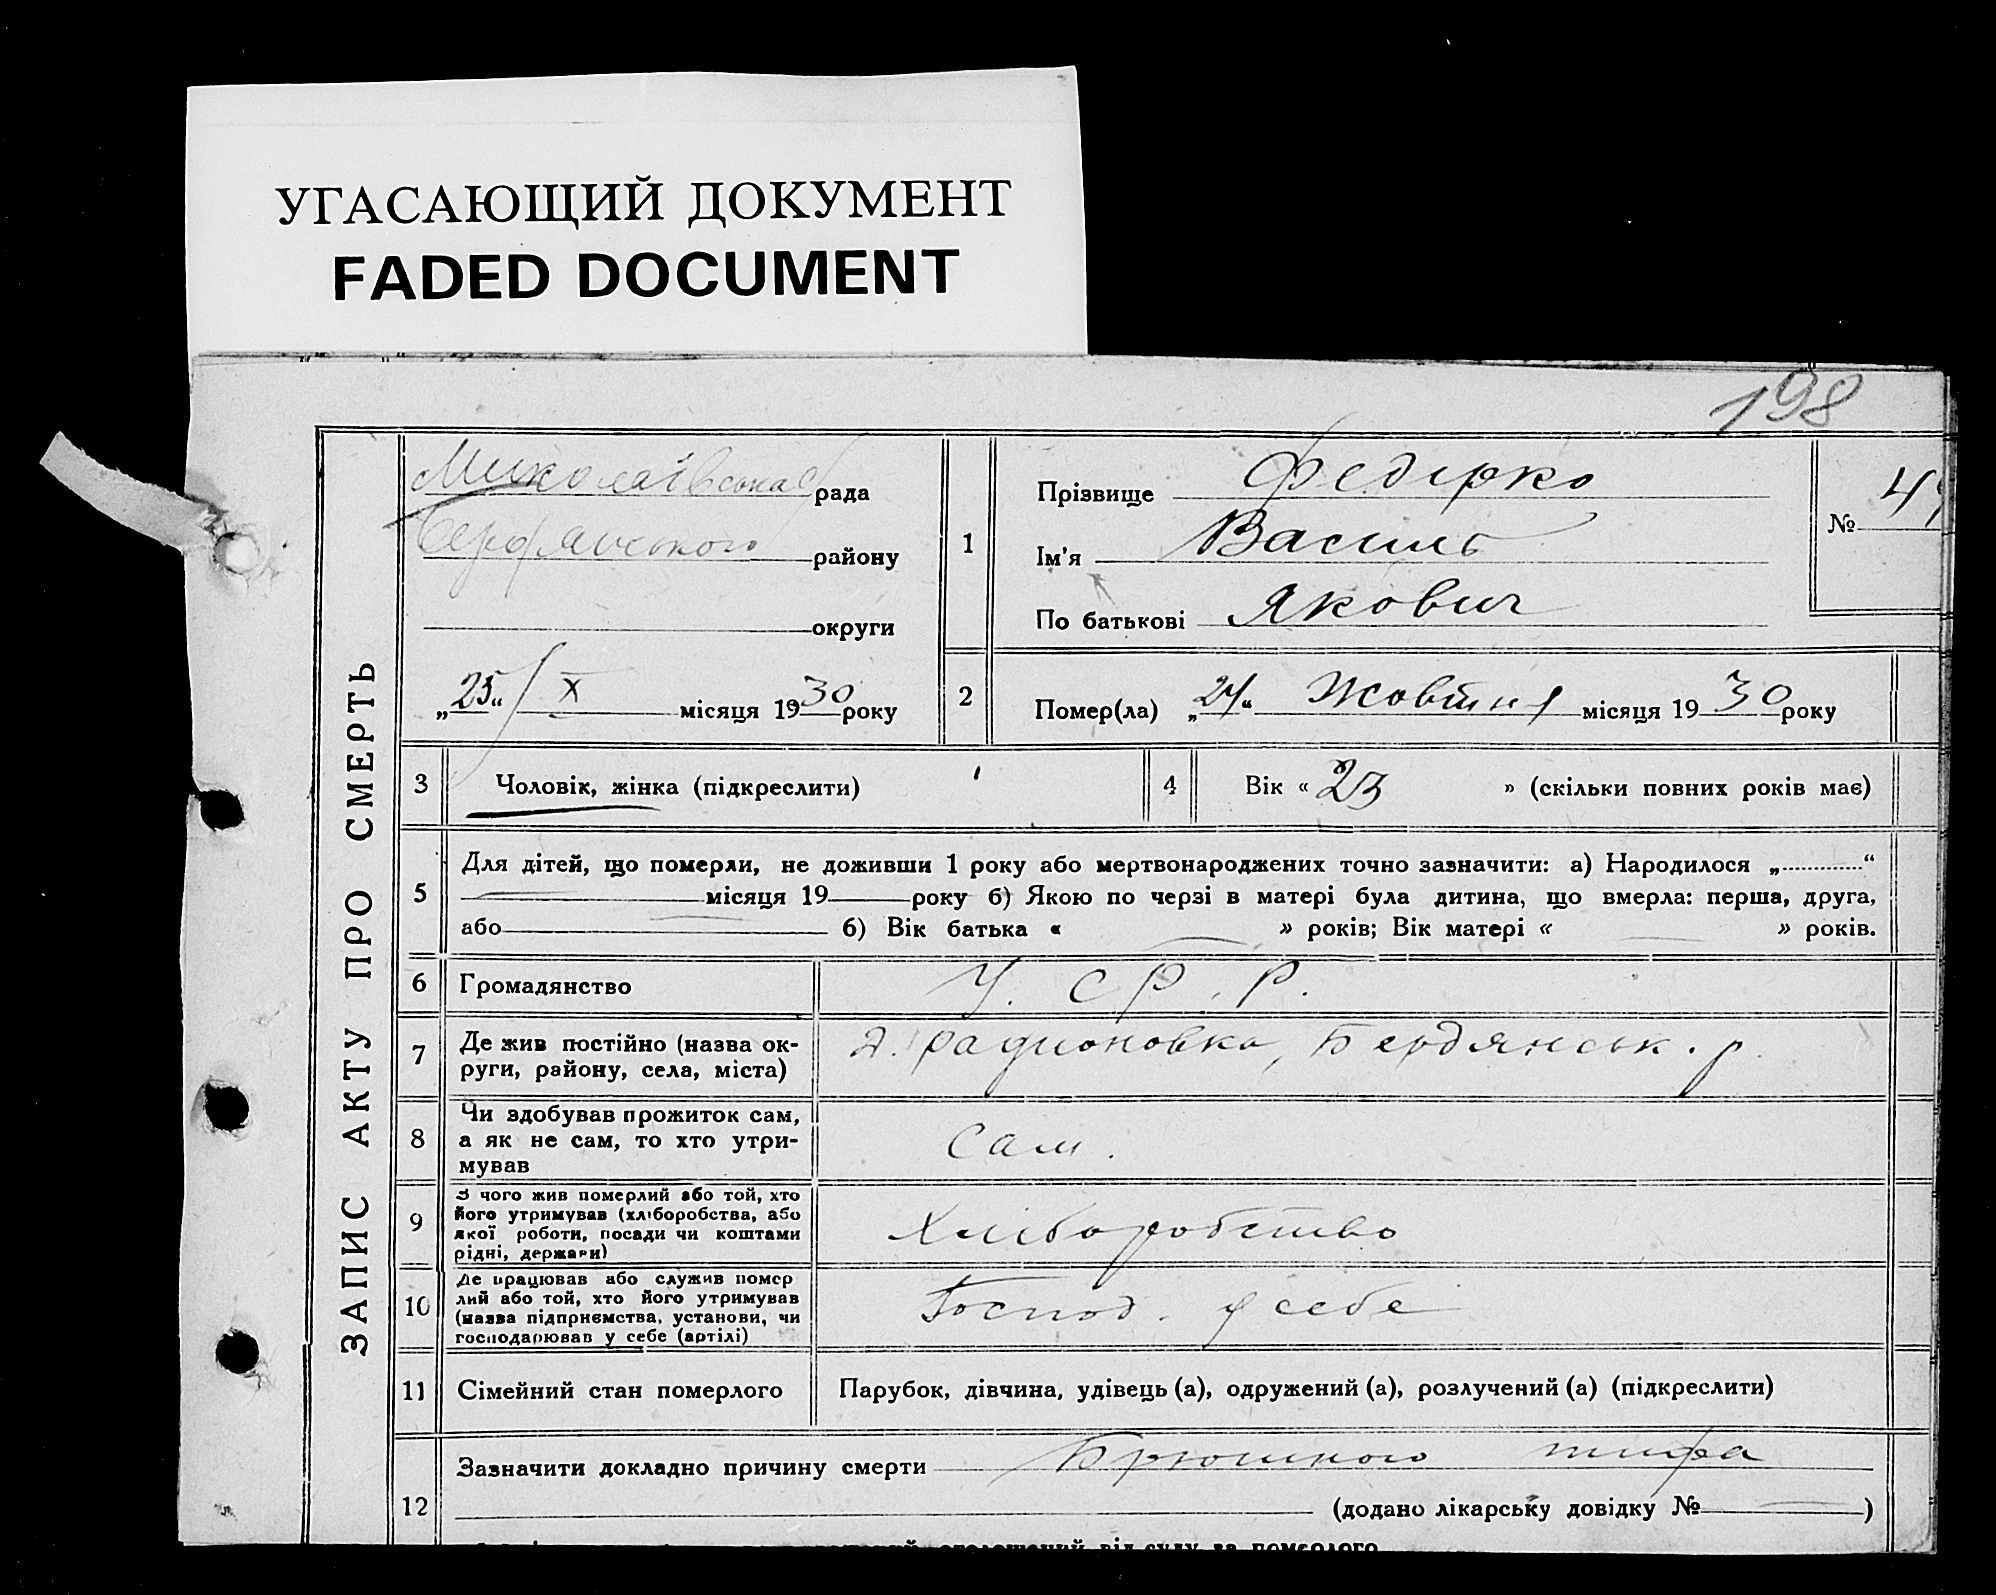 УГАСАЮЩИЙ ДОКУМЕНТ
FADED DOCUMENT
198
ЗАПИС АКТУ ПРО СМЕРТЬ
Миколаївська рада
Бердянського району
округи
„25“ X місяця 1930 року
1
Прізвище Федірко
Ім'я Василь
По батькові Якович
№ 4
2
Помер(ла) „24“ Жовтня місяця 1930 року
3
Чоловік, жінка (підкреслити)
4
Вік « 23 » (скільки повних років має)
5
Для дітей, що померли, не доживши 1 року або мертвонароджених точно зазначити: а) Народилося „ “
місяця 19 року б) Якою по черзі в матері була дитина, що вмерла: перша, друга,
або б) Вік батька « » років; Вік матері « » років.
6
Громадянство
У. С Р. Р.
7
Де жив постійно (назва ок-
руги, району, села, міста)
Радионовка, Бердянськ. р.
8
Чи здобував прожиток сам,
а як не сам, то хто утри-
мував
Сам.
9
З чого жив померлий або той, хто
його утримував (хліборобства, або
якої роботи, посади чи коштами
рідні, держави)
Хліборобство
10
Де працював або служив помер
лий або той, хто його утримував
(назва підприємства, установи, чи
господарював у себе (артілі)
Господ. у себе
11
Сімейний стан померлого
Парубок, дівчина, удівець (а), одружений (а), розлучений (а) (підкреслити)
12
Зазначити докладно причину смерти Брюшного тифа
(додано лікарську довідку № )